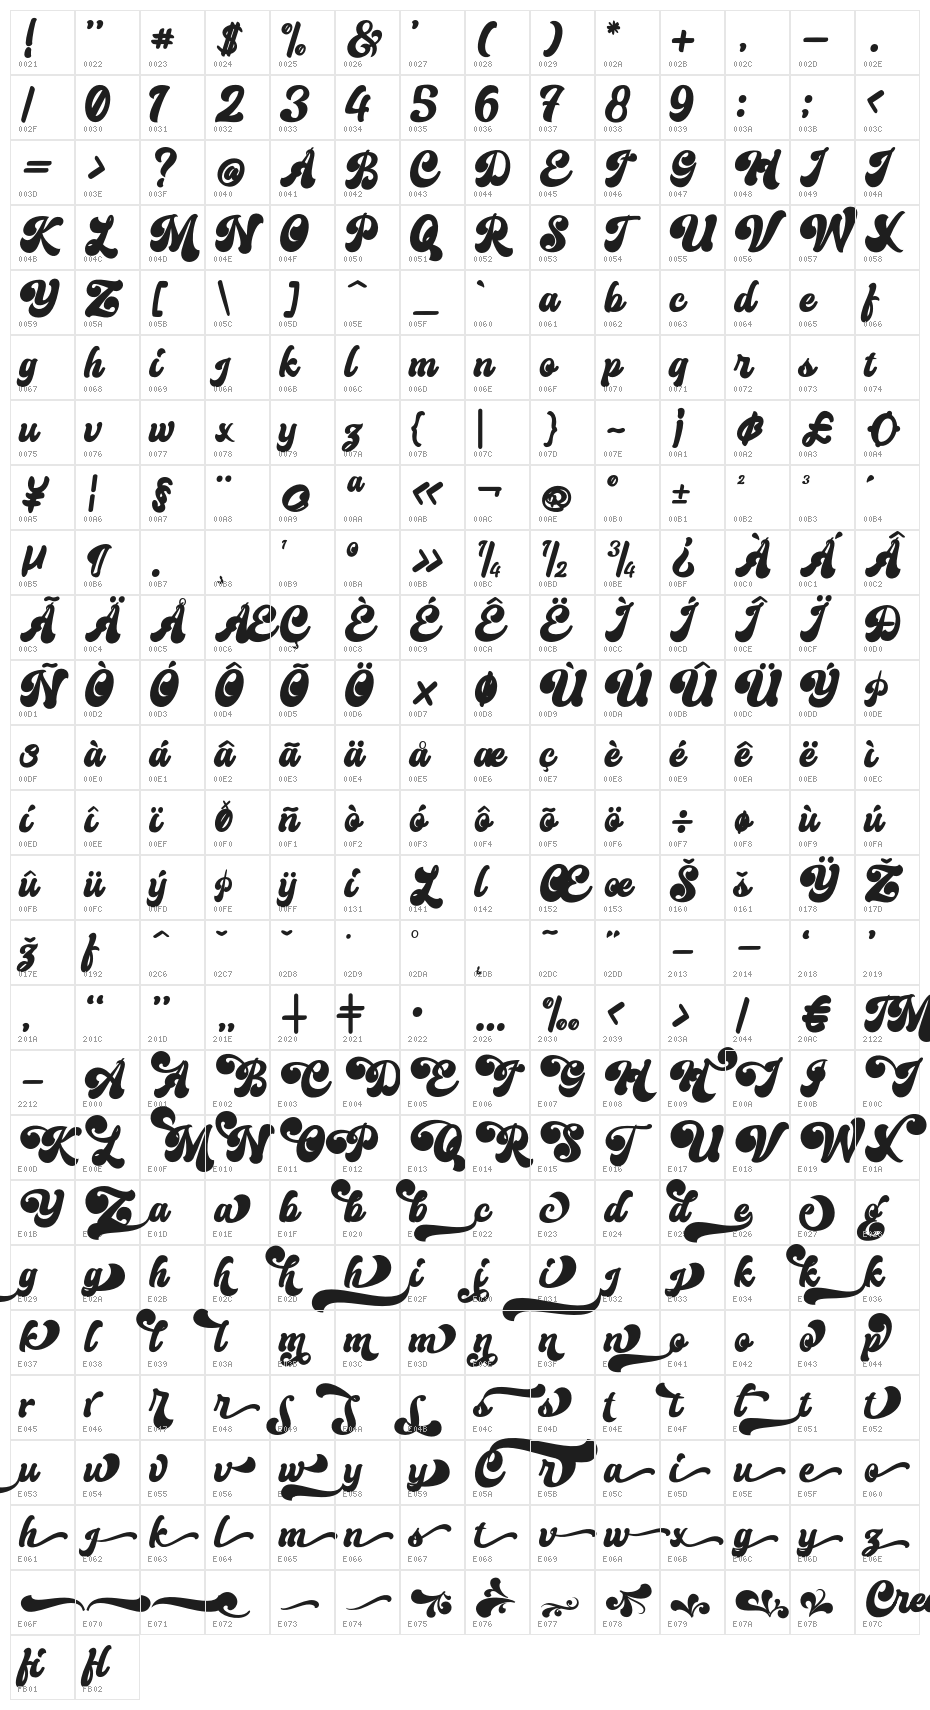 ! " # $ % & ' ( ) * + , - .
0021 0022 0023 0024 0025 0026 0027 0028 0029 002A 002B 002C 002D 002E
/ 0 1 2 3 4 5 6 7 8 9 : ; <
002F 0030 0031 0032 0033 0034 0035 0036 0037 0038 0039 003A 003B 003C
= > ? @ A B C D E F G H I J
003D 003E 003F 0040 0041 0042 0043 0044 0045 0046 0047 0048 0049 004A
K L M N O P Q R S T U V W X
004B 004C 004D 004E 004F 0050 0051 0052 0053 0054 0055 0056 0057 0058
Y Z [ \ ] ^ _ ` a b c d e f
0059 005A 005B 005C 005D 005E 005F 0060 0061 0062 0063 0064 0065 0066
g h i j k l m n o p q r s t
0067 0068 0069 006A 006B 006C 006D 006E 006F 0070 0071 0072 0073 0074
u v w x y z { | } ~ ¡ ¢ £ ¤
0075 0076 0077 0078 0079 007A 007B 007C 007D 007E 00A1 00A2 00A3 00A4
¥ ¦ § ¨ © ª « ¬ ® ° ± ² ³ ´
00A5 00A6 00A7 00A8 00A9 00AA 00AB 00AC 00AE 00B0 00B1 00B2 00B3 00B4
µ ¶ · ¸ ¹ º » ¼ ½ ¾ ¿ À Á Â
00B5 00B6 00B7 00B8 00B9 00BA 00BB 00BC 00BD 00BE 00BF 00C0 00C1 00C2
Ã Ä Å Æ Ç È É Ê Ë Ì Í Î Ï Ð
00C3 00C4 00C5 00C6 00C7 00C8 00C9 00CA 00CB 00CC 00CD 00CE 00CF 00D0
Ñ Ò Ó Ô Õ Ö × Ø Ù Ú Û Ü Ý Þ
00D1 00D2 00D3 00D4 00D5 00D6 00D7 00D8 00D9 00DA 00DB 00DC 00DD 00DE
ß à á â ã ä å æ ç è é ê ë ì
00DF 00E0 00E1 00E2 00E3 00E4 00E5 00E6 00E7 00E8 00E9 00EA 00EB 00EC
í î ï ð ñ ò ó ô õ ö ÷ ø ù ú
00ED 00EE 00EF 00F0 00F1 00F2 00F3 00F4 00F5 00F6 00F7 00F8 00F9 00FA
û ü ý þ ÿ ı Ł ł Œ œ Š š Ÿ Ž
00FB 00FC 00FD 00FE 00FF 0131 0141 0142 0152 0153 0160 0161 0178 017D
ž ƒ ˆ ˇ ˘ ˙ ˚ ˛ ˜ ˝ – — ‘ ’
017E 0192 02C6 02C7 02D8 02D9 02DA 02DB 02DC 02DD 2013 2014 2018 2019
‚ “ ” „ † ‡ • … ‰ ‹ › ⁄ € ™
201A 201C 201D 201E 2020 2021 2022 2026 2030 2039 203A 2044 20AC 2122
− A A B C D E F G H H I J J
2212 E000 E001 E002 E003 E004 E005 E006 E007 E008 E009 E00A E00B E00C
K L M N O P Q R S T U V W X
E00D E00E E00F E010 E011 E012 E013 E014 E015 E016 E017 E018 E019 E01A
Y Z a a b b b c c d d e e
E01B E01D E01E E01F E020 E021 E022 E023 E024 E025 E026 E027 E028
g g h h h h i i i j j k k k
E029 E02A E02B E02C E02D E02F E030 E031 E032 E033 E034 E035 E036
k l l l m m m n n n o o o p
E037 E038 E039 E03A E03B E03C E03D E03E E03F E040 E041 E042 E043 E044
r r r r s s s s s t t t t t
E045 E046 E047 E048 E049 E04A E04B E04C E04D E04E E04F E051 E052
u u v v w y y C r a i u e o
E053 E054 E055 E056 E058 E059 E05A E05B E05C E05D E05E E05F E060
h j k l m n s t v w x g y z
E061 E062 E063 E064 E065 E066 E067 E068 E069 E06A E06B E06C E06D E06E
E06F E070 E071 E072 E073 E074 E075 E076 E077 E078 E079 E07A E07B E07C
fi fl
FB01 FB02